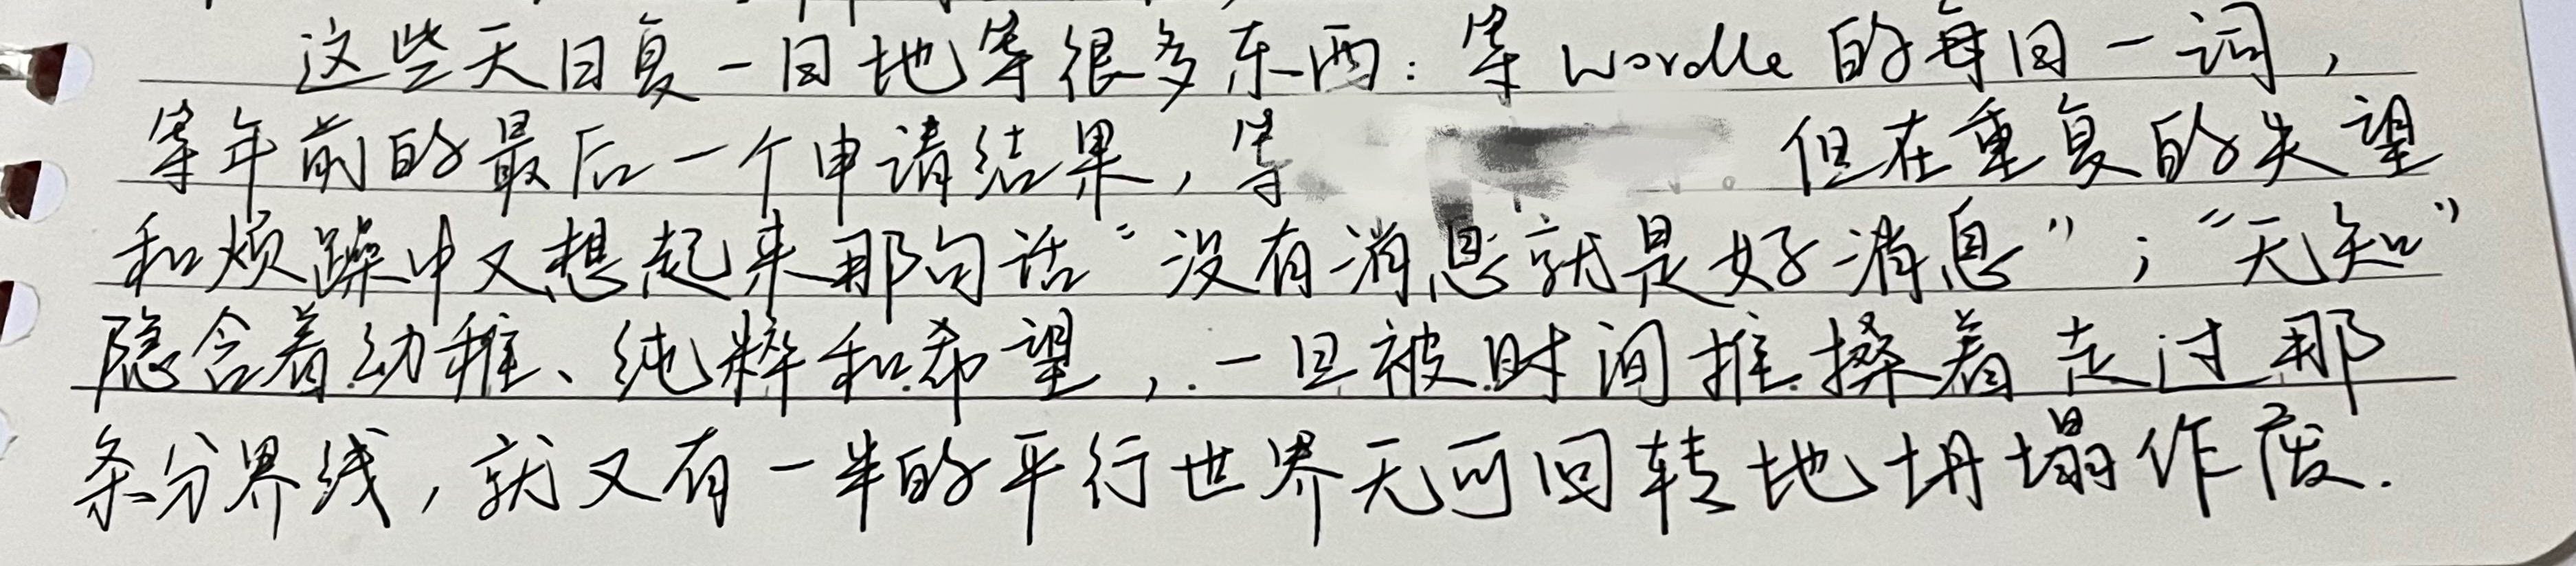 这些天日复一日地等很多东西：等 Wordle 的每日一词，
等年前的最后一个申请结果，等 。但在重复的失望
和烦躁中又想起来那句话“没有消息就是好消息”；“无知”
隐含着幼稚、纯粹和希望，一旦被时间推搡着走过那
条分界线，就又有一半的平行世界无可回转地坍塌作废.